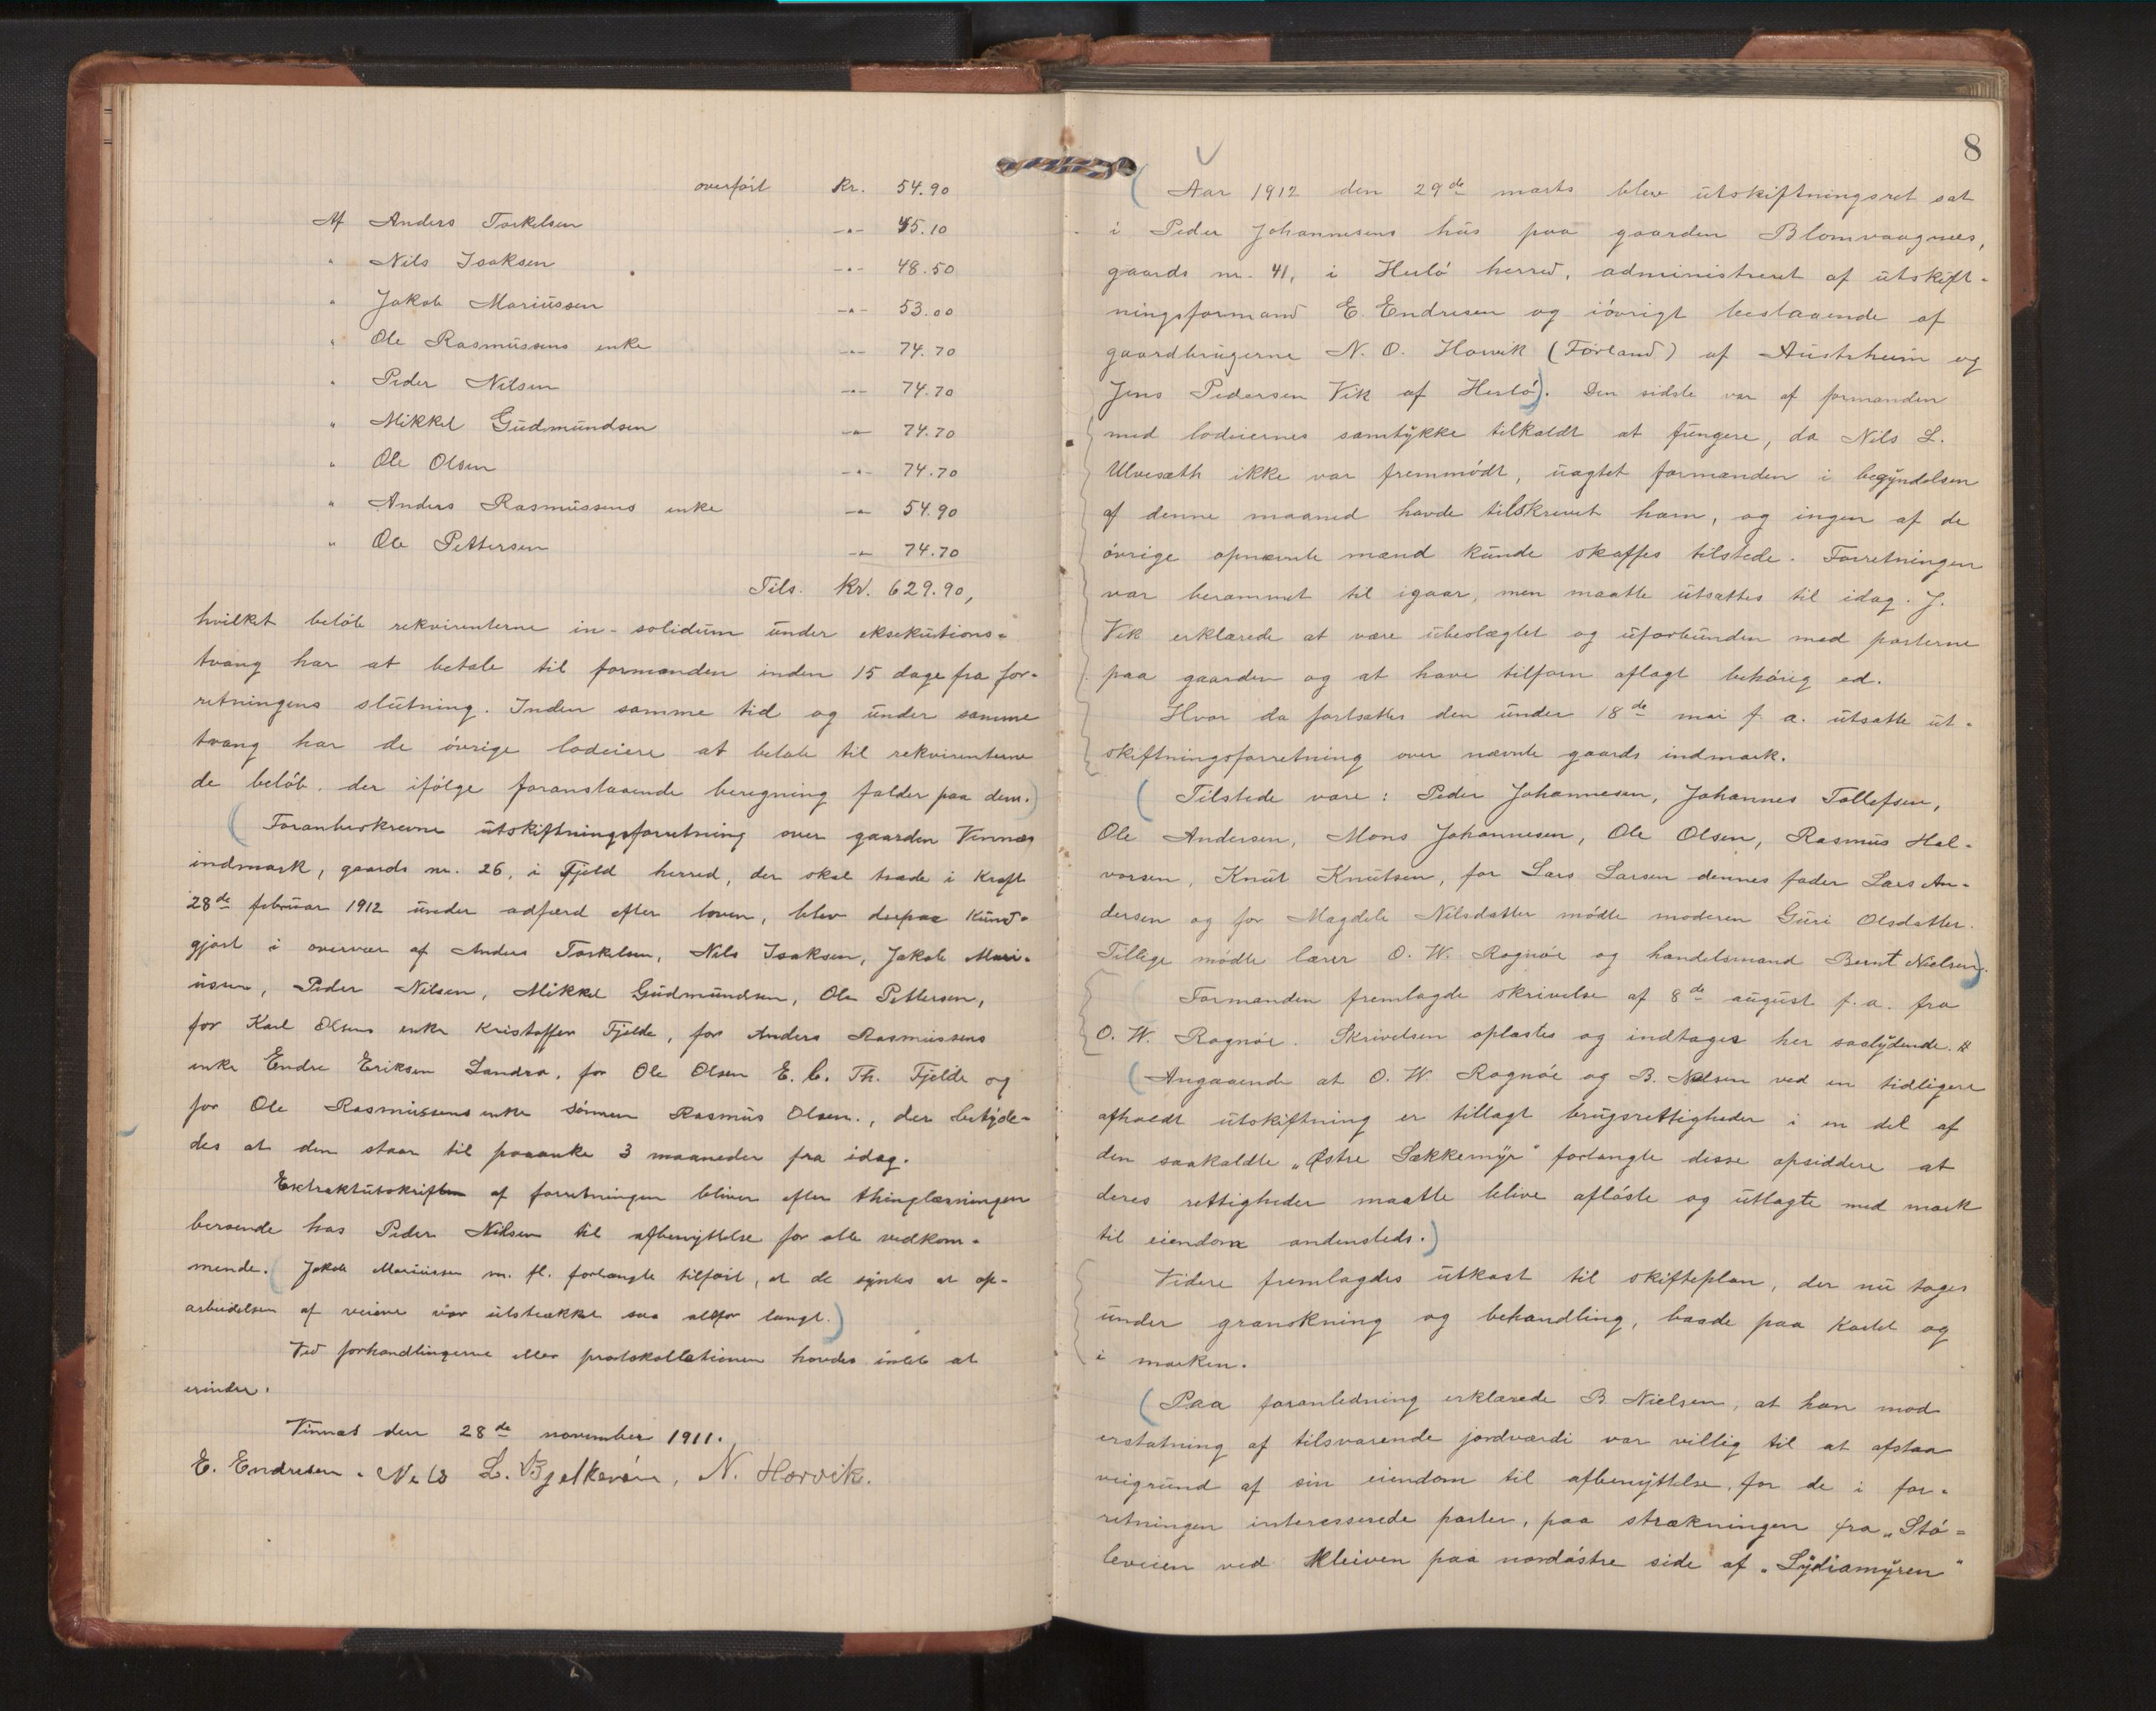 overført Kr. 54.90
Af Anders Torkelsen -"- 45.10
" Nils Isaksen -"- 48.50
" Jakob Mariüssen -"- 53.00
" Ole Rasmüssens enke -"- 74.70
" Peder Nilsen -"- 74.70
" Mikkel Güdmündsen -"- 74.70
" Ole Olsen -"- 74.70
" Anders Rasmüssens enke -"- 54.90
" Ole Pettersen -"- 74.70
Tils. kr. 629.90,
hvilket beløb rekvirenterne in-solidüm ünder eksekütions-
tvang har at betale til formanden inden 15 dage fra for-
retningens slütning. Inden samme tid og ünder samme
tvang har de øvrige lodeiere at betale til rekvirenterne
de beløb, der ifølge foranstaaende beregning falder paa dem.)
(Foranbeskrevne ütskiftningsforretning over gaarden Vinnæs
indmark, gaards nr. 26, i Fjeld herred, der skal træde i kraft
28de febrüar 1912 ünder adfærd efter loven, blev derpaa künd-
gjort i overvær af Anders Torkelsen, Nils Isaksen, Jakob Mari-
üssen, Peder Nilsen, Mikkel Güdmündsen, Ole Pettersen,
for Karl Olsens enke Kristoffer Fjelde, for Anders Rasmüssens
enke Endre Eriksen Landra, for Ole Olsen E. C. Th. Fjelde og
for Ole Rasmüssens enke sønnen Rasmüs Olsen., der betyde-
des at den staar til paaanke 3 maaneder fra idag.
Extraktütskriften af forretningen bliver efter thinglæsningen
beroende hos Peder Nilsen til afbenyttelse for alle vedkom-
mende. (Jakob Mariüssen m. fl. forlangte tilført, at de syntes at op-
arbeidelsen af veiene var ütstrakket saa altfor langt.)
Ved forhandlingerne eller protokollationen havdes intet at
erindre.
Vinnæs den 28de november 1911.
E. Endresen. Nels L. Bjelkerøen, N. Horvik.
8
(Aar 1912 den 29de marts blev ütskiftningsret sat
i Peder Johannesens hüs paa gaarden Blomvaagnæs,
gaards nr. 41, i Herlø herred, administreret af ütskift-
ningsformand E. Endresen og iøvrigt bestaaende af
gaardbrügerne N. O. Horvik (Førland) af Aüstrheim og
Jens Pedersen Vik af Herlø). Den sidste var af formanden
med lodeiernes samtykke tilkaldt at füngere, da Nils L.
Ulvesæth ikke var fremmødt, üagtet formanden i begyndelsen
af denne maaned havde tilskrevet ham, og ingen af de
øvrige opnævnte mænd künde skaffes tilstede. Forretningen
var berammet til igaar, men maatte ütsættes til idag. J.
Vik erklærede at være übeslægtet og üforbünden med parterne
paa gaarden og at have tilforn aflagt behørig ed.
Hvor da fortsattes den ünder 18de mai f. a. ütsatte üt-
skiftningsforretning over nævnte gaards indmark.
(Tilstede vare: Peder Johannesen, Johannes Tollefsen,
Ole Andersen, Mons Johannesen, Ole Olsen, Rasmüs Hal-
vorsen, Knüt Knütsen, for Lars Larsen dennes fader Lars An-
dersen og for Magdele Nilsdatter mødte moderen Güri Olsdatter.
Tillige mødte lærer O. W. Rognøe og handelsmand Bernt Nielsen).
Formanden fremlagde skrivelse af 8de aügüst f. a. fra
O. W. Rognøe. Skrivelsen oplæstes og indtages her saalydende.
(Angaaende at O. W. Rognøe og B. Nielsen ved en tidligere
afholdt ütskiftning er tillagt brügsrettigheder i en del af
den saakaldte „Østre Sækkemyr" forlangte disse opsiddere at
deres rettigheder maatte blive afløste og ütlagte med mark
til eiendom andensteds.)
Videre fremlagdes ütkast til skifteplan, der nü tages
ünder granskning og behandling, baade paa kartet og
i marken.
(Paa foranledning erklærede B. Nielsen, at han mod
erstatning af tilsvarende jordværdi var villig til at afstaa
veigründ af sin eiendom til afbenyttelse for de i for-
retningen interesserede parter, paa strækningen fra „Stø-
leveien ved Kleiven paa nordøstre side af „Lydiamyren"